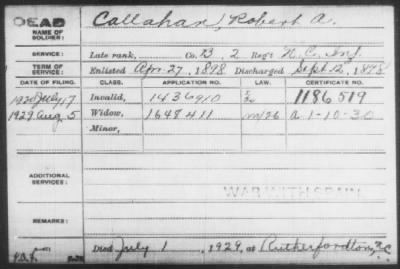 DEAD
NAME OF SOLDIER: Callahan, Robert A.
SERVICE: Late rank, Co. B, 2 Reg't N.C. Inf.
TERM OF SERVICE: Enlisted Apr. 27, 1898, Discharged Sept. 12, 1898
DATE OF FILING. CLASS. APPLICATION NO. LAW. CERTIFICATE NO.
1920 July 17 Invalid, 1436910 1186519
1929 Aug. 5 Widow, 1648411 a 1-10-30
Minor,
ADDITIONAL SERVICES:
WAR WITH SPAIN
REMARKS:
Died July 1, 1929, at Rutherfordton, N.C.